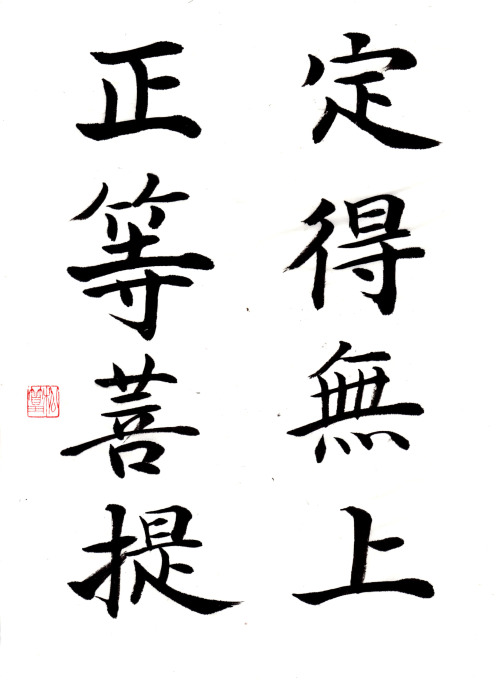 定得無上
正等菩提